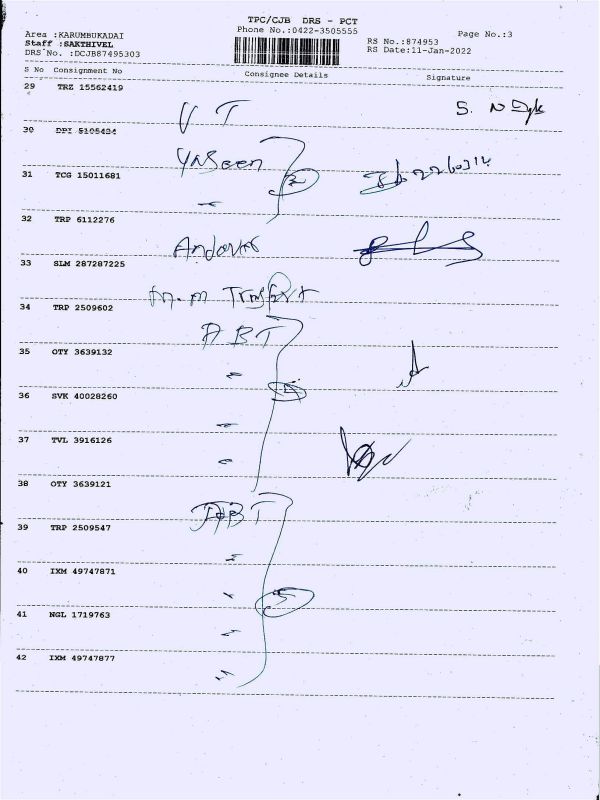 TPC/CJB DRS - PCT
Area :KARUMBUKADAI Phone No.:0422-3505555 Page No.:3
Staff :SAKTHIVEL RS No.:874953
DRS No. :DCJB87495303 RS Date:11-Jan-2022
S No Consignment No Consignee Details Signature
29 TRZ 15562419
V T
30 DPI 5105434
Yaseen
31 TCG 15011681
2
32 TRP 6112276
33 SLM 287287225
34 TRP 2509602
ABT
35 OTY 3639132
36 SVK 40028260
37 TVL 3916126
38 OTY 3639121
ABT
39 TRP 2509547
40 IXM 49747871
5
41 NGL 1719763
42 IXM 49747877